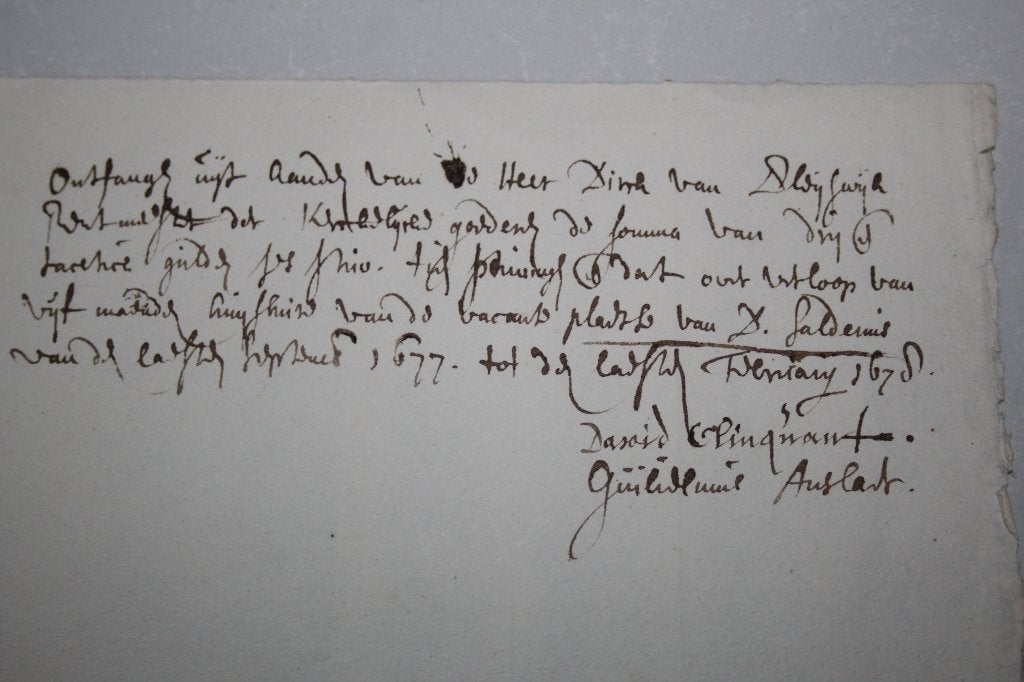 Ontfangen uijt handen van de Heer Dirck van Bleijswijk
Rentmeester der Kerckelijcke goederen de somma van drij en
gulden ses stuv. tien penningen en dat over verloop van
vijf maenden huijshuire van de vacante plaetse van D. Saldenus
van den laesten Septemb 1677. tot den laesten Februarij 1678.
David Clinquant.
Guilielmus Anslaer.